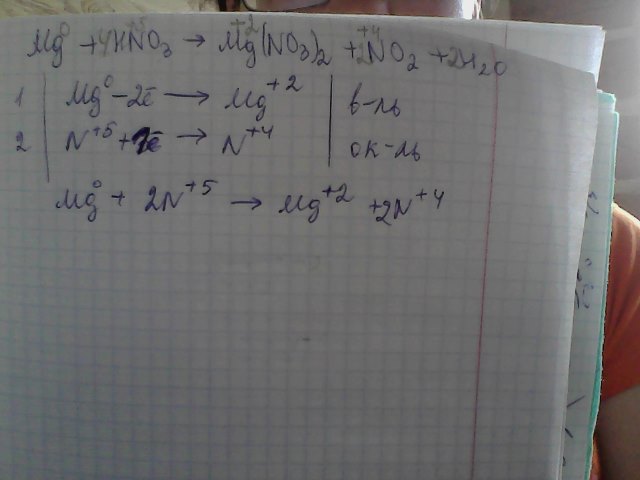 Mg⁰ + 4HN⁺⁵O₃ → Mg⁺²(NO₃)₂ + 2N⁺⁴O₂ + 2H₂O
1 | Mg⁰ - 2ē → Mg⁺² | в-ль
2 | N⁺⁵ + 1ē → N⁺⁴ | ок-ль
Mg⁰ + 2N⁺⁵ → Mg⁺² + 2N⁺⁴